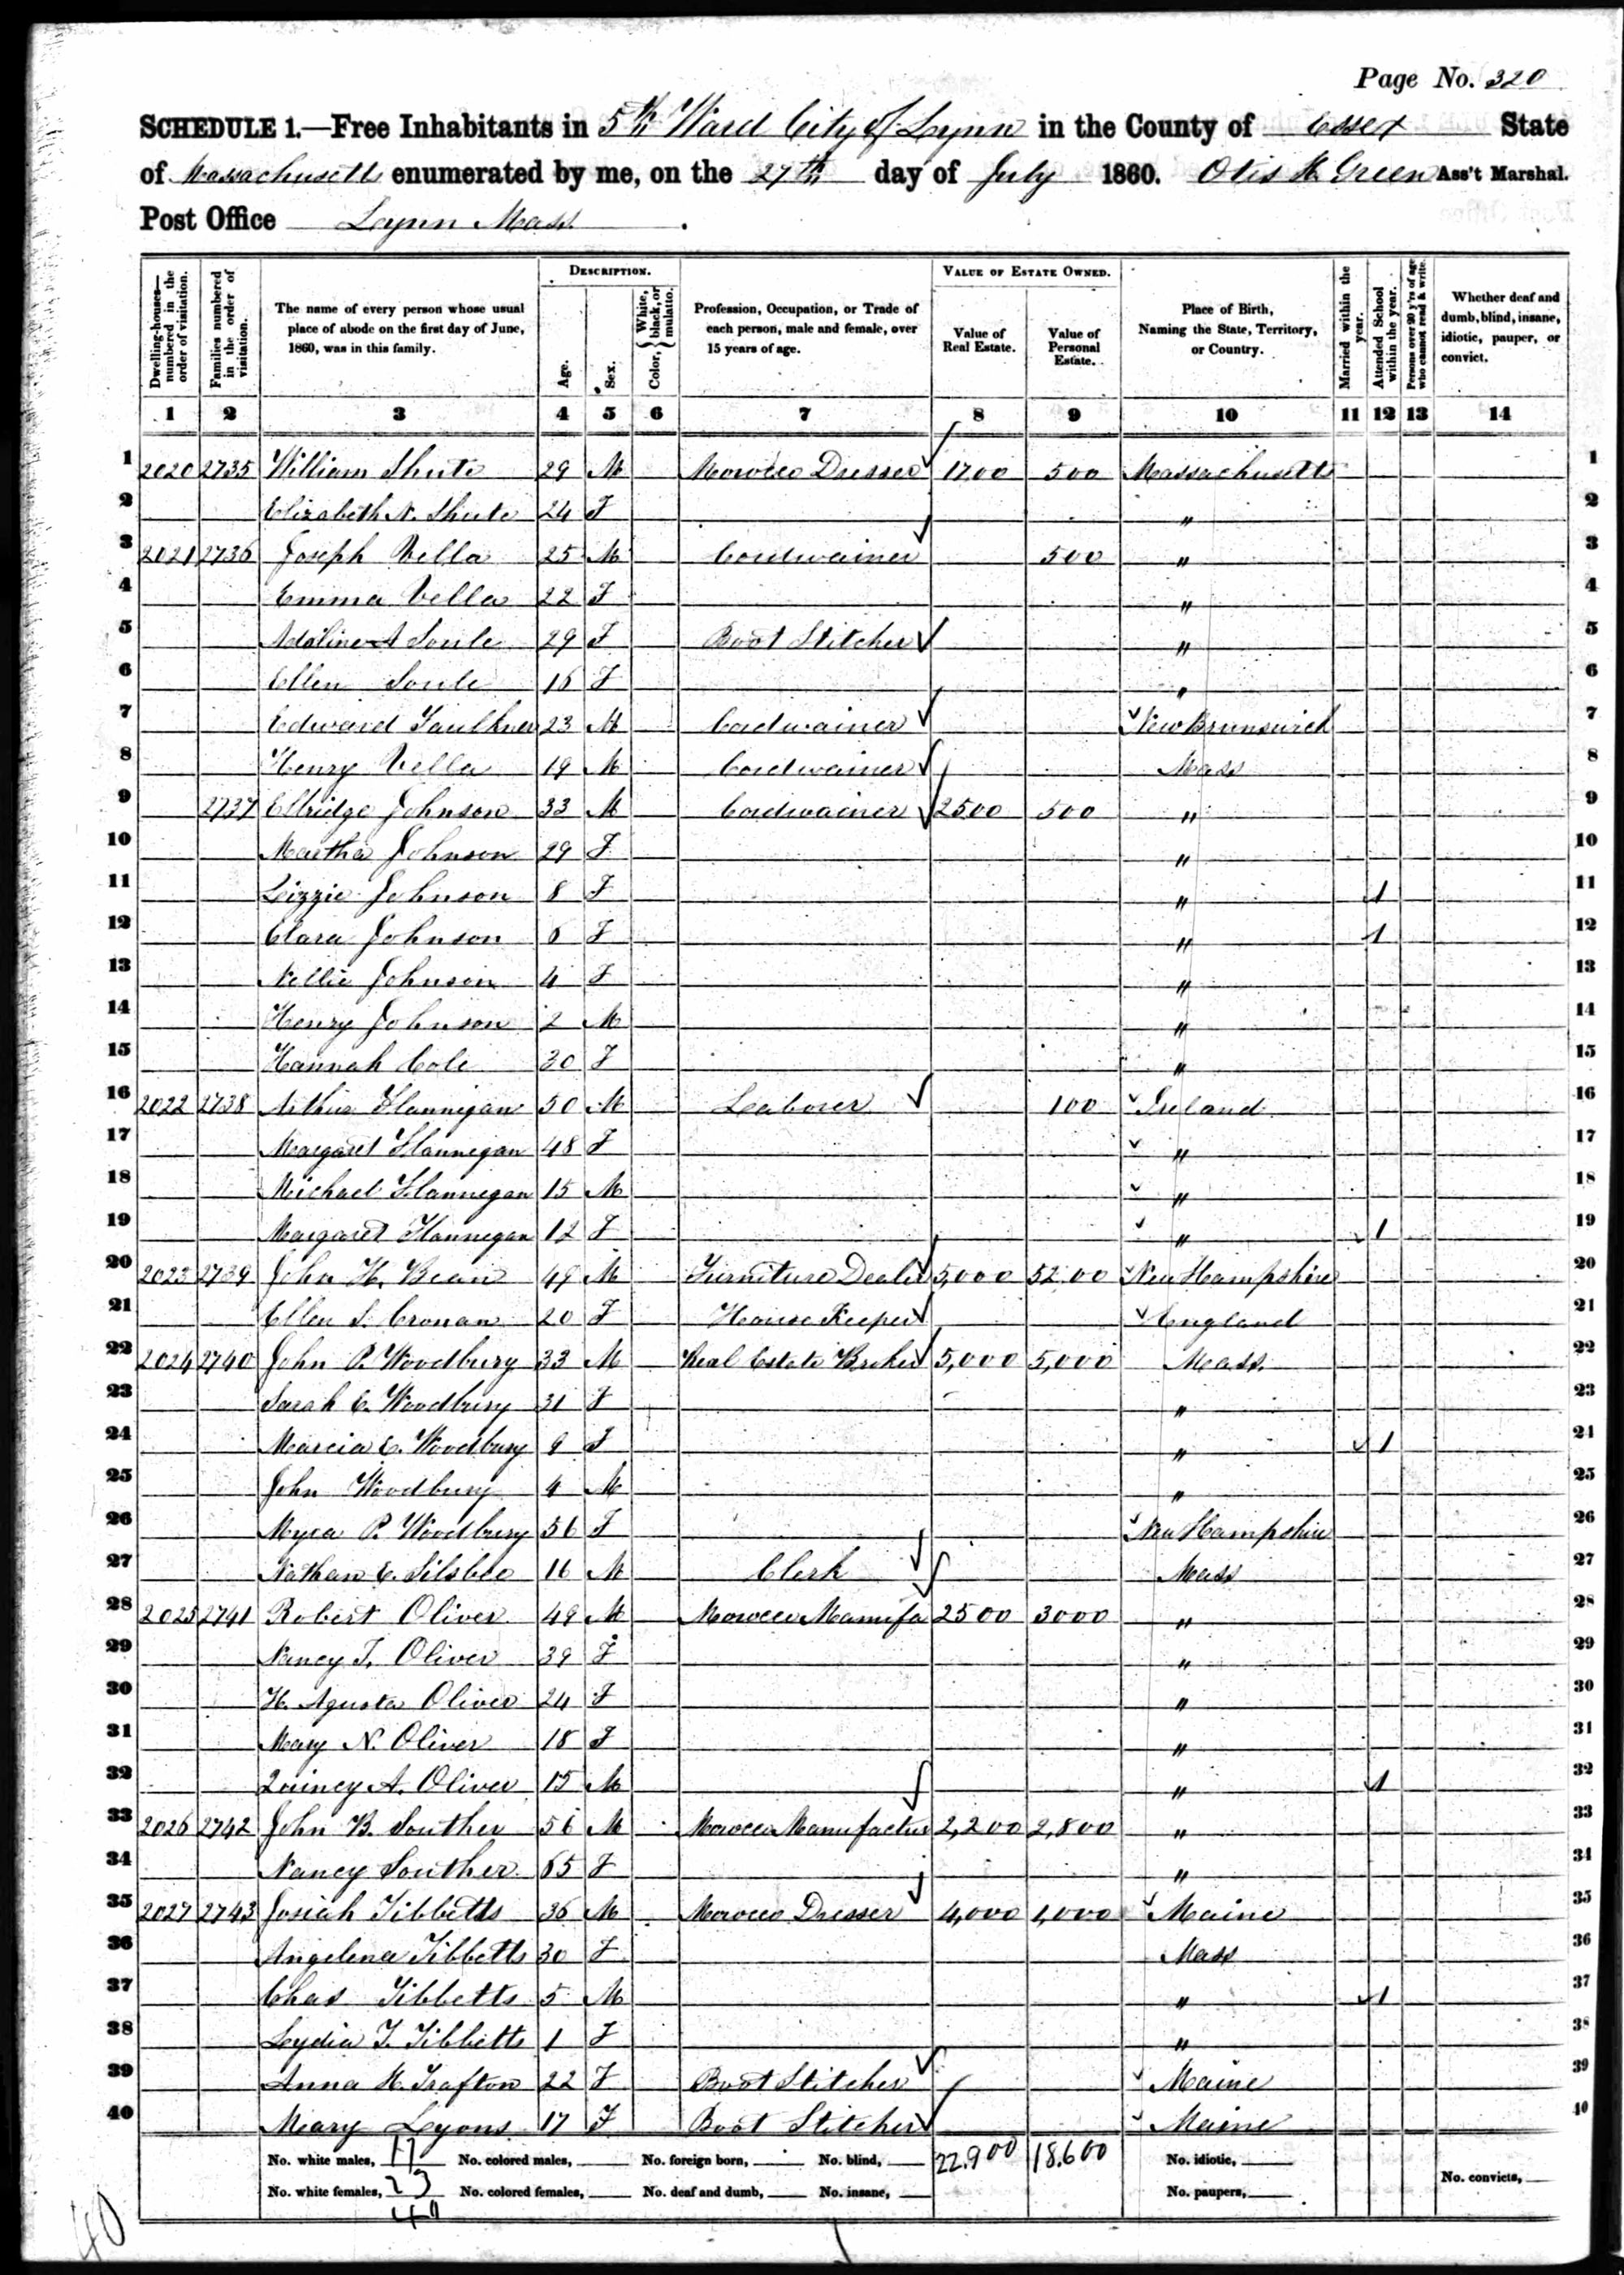 Page No. 320
SCHEDULE 1.—Free Inhabitants in 5th Ward City of Lynn in the County of Essex State
of Massachusetts enumerated by me, on the 27th day of July 1860. Otis H. Green Ass't Marshal.
Post Office Lynn Mass.
DESCRIPTION. VALUE OF ESTATE OWNED.
Dwelling-houses—numbered in the order of visitation. Families numbered in the order of visitation. The name of every person whose usual place of abode on the first day of June, 1860, was in this family. Age. Sex. Color, { White, black, or mulatto. Profession, Occupation, or Trade of each person, male and female, over 15 years of age. Value of Real Estate. Value of Personal Estate. Place of Birth, Naming the State, Territory, or Country. Married within the year. Attended School within the year. Persons over 20 y'rs of age who cannot read & write. Whether deaf and dumb, blind, insane, idiotic, pauper, or convict.
1 2 3 4 5 6 7 8 9 10 11 12 13 14
1 2020 2735 William Shute 29 M Morocco Dresser 1700 500 Massachusetts 1
2 Elizabeth N. Shute 24 F " 2
3 2021 2736 Joseph Vella 25 M Cordwainer 500 " 3
4 Emma Vella 22 F " 4
5 Adaline A Soule 29 F Boot Stitcher " 5
6 Ellen Soule 16 F " 6
7 Edward Faulkner 23 M Cordwainer New Brunswick 7
8 Henry Vella 19 M Cordwainer Mass 8
9 2737 Elbridge Johnson 33 M Cordwainer 2500 500 " 9
10 Martha Johnson 29 F " 10
11 Lizzie Johnson 8 F " 1 11
12 Clara Johnson 6 F " 1 12
13 Nellie Johnson 4 F " 13
14 Henry Johnson 2 M " 14
15 Hannah Cole 30 F " 15
16 2022 2738 Arthur Flannigan 50 M Laborer 100 Ireland 16
17 Margaret Flannegan 48 F " 17
18 Michael Flannegan 15 M " 18
19 Margaret Flannegan 12 F " 1 19
20 2023 2739 John H. Bean 49 M Furniture Dealer 5,000 5200 New Hampshire 20
21 Ellen S. Cronan 20 F House Keeper England 21
22 2024 2740 John P. Woodbury 33 M Real Estate Broker 5,000 5,000 Mass. 22
23 Sarah E. Woodbury 31 F " 23
24 Marcia E. Woodbury 9 F " 1 24
25 John Woodbury 4 M " 25
26 Myra P. Woodbury 56 F New Hampshire 26
27 Nathan E. Silsbee 16 M Clerk Mass 27
28 2025 2741 Robert Oliver 49 M Morocco Manufa 2500 3000 " 28
29 Nancy T. Oliver 39 F " 29
30 H. Agusta Oliver 24 F " 30
31 Mary N. Oliver 18 F " 31
32 Quincy A. Oliver 15 M " 1 32
33 2026 2742 John B. Souther 56 M Morocco Manufactur 2,200 2,800 " 33
34 Nancy Souther 55 F " 34
35 2027 2743 Josiah Tibbetts 36 M Morocco Dresser 4,000 1,000 Maine 35
36 Angelena Tibbetts 30 F Mass 36
37 Chas Tibbetts 5 M " 1 37
38 Lydia T. Tibbetts 1 F " 38
39 Anna H. Trafton 22 F Boot Stitcher Maine 39
40 Mary Lyons 17 F Boot Stitcher Maine 40
No. white males, 17 No. colored males, No. foreign born, No. blind, 22,900 18,600 No. idiotic,
No. white females, 23 No. colored females, No. deaf and dumb, No. insane, No. paupers, No. convicts,
40
40